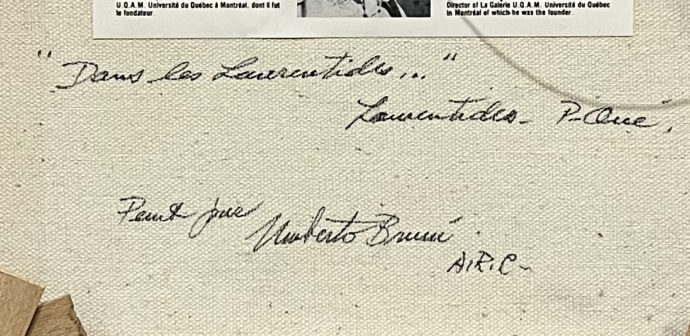 U.Q.A.M. Université du Québec à Montréal, dont il fut
le fondateur.
Director of La Galerie U.Q.A.M. Université du Québec
in Montréal of which he was the founder.
"Dans les Laurentides..."
Laurentides - P-Qué.
Peint par
Umberto Bruni
A.R.C-